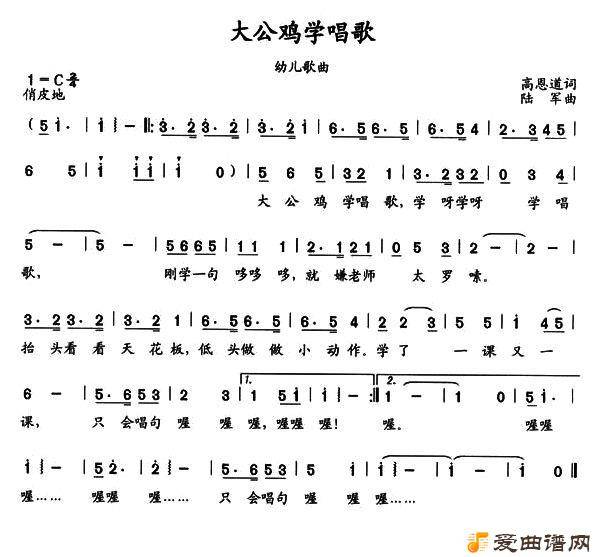 大公鸡学唱歌
幼儿歌曲
1=C 2/4
俏皮地
高恩道词
陆 军曲
( 5 1· | 1 1 - ‖: 3·2 3·2 | 3·2 1 | 6·5 6·5 | 6·5 4 | 2·3 4 5 |
6 5 | 1 1 1 | 1 0 ) | 5 6 5 | 5 1 1 6 | 5 5 6 5 | 0 3 4 |
大 公 鸡 学唱 歌,学 呀学呀 学 唱
5 - | 5 - | 5665 | 1 1 1 | 2·1 2 1 | 0 5 3 | 2 - | 2 - |
歌, 刚学一句 哆哆 哆,就 嫌老师 太 罗 嗦。
3·2 3 2 | 3·2 1 | 6·5 6·5 | 6·5 4 | 2 2 3 | 5 5 | 1 4 5 |
抬 头看 看 天 花 板,低 头做 做 小 动作。学 了 一 课 又 一
6 - | 5·6 5 3 | 2 3 | 1. 1 5 1 | 1 1 - :‖ 2. 1 - | 1 0 | 5 1· |
课, 只 会唱句 喔 喔 喔,喔喔 喔! 喔。 喔喔
1 1 - | 5 2· | 2 - | 5·6 5 3 | 2 3 | 1 - | 1 0 ‖
喔…… 喔喔 喔…… 只 会唱句 喔 喔 喔……
爱曲谱网